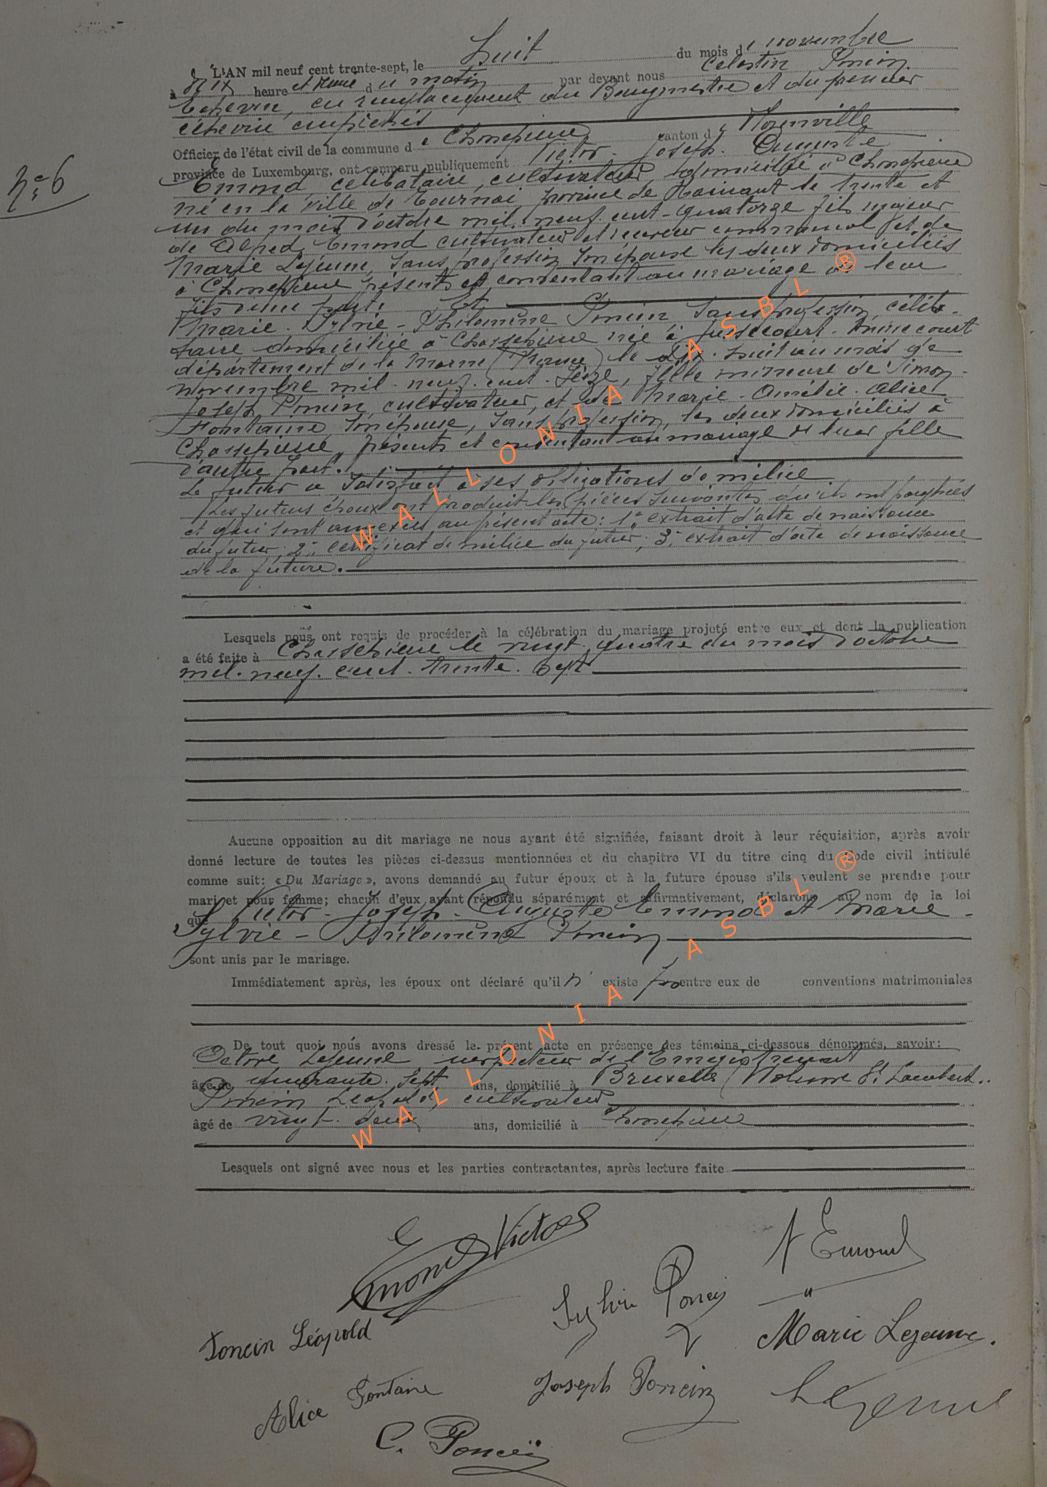 L'AN mil neuf cent trente-sept, le huit du mois de novembre
à dix heures et demie du matin par devant nous Célestin Poncin
Echevin, en remplacement du Bourgmestre et du premier
échevin empêchés
Officier de l'état civil de la commune de Chassepierre canton de Florenville
province de Luxembourg, ont comparu publiquement Victor - Joseph - Auguste
N° 6
Emond, célibataire, cultivateur, domicilié à Chassepierre
né en la ville de Tournai, province de Hainaut le trente et
un du mois d'octobre mil neuf cent quatorze fils majeur
de Alfred Emond cultivateur et receveur communal et de
Marie Lejeune, sans profession, son épouse les deux domiciliés
à Chassepierre présents et consentant au mariage de leur
fils d'une part; et
Marie - Sylvie - Philomène Poncin sans profession, céliba-
taire domiciliée à Chassepierre née à
département de la Marne (France) le dix-huit du mois de
novembre mil neuf cent seize, fille mineure de Simon-
Joseph Poncin, cultivateur, et de Marie-Amélie-Alice
Fontaine son épouse, sans profession, les deux domiciliés à
Chassepierre, présents et consentant au mariage de leur fille
d'autre part.
Le futur a satisfait à ses obligations de milice.
Les futurs époux ont produit les pièces suivantes qu'ils ont paraphées
et qui sont annexées au présent acte: 1° extrait d'acte de naissance
du futur, 2° certificat de milice du futur, 3° extrait d'acte de naissance
de la future.
Lesquels nous ont requis de procéder à la célébration du mariage projeté entre eux et dont la publication
a été faite à Chassepierre le vingt-quatre du mois d'octobre
mil-neuf-cent-trente-sept
Aucune opposition au dit mariage ne nous ayant été signifiée, faisant droit à leur réquisition, après avoir
donné lecture de toutes les pièces ci-dessus mentionnées et du chapitre VI du titre cinq du code civil intitulé
comme suit: « Du Mariage », avons demandé au futur époux et à la future épouse s'ils veulent se prendre pour
mari et pour femme; chacun d'eux ayant répondu séparément et affirmativement, déclarons au nom de la loi
que Victor - Joseph - Auguste Emond et Marie -
Sylvie - Philomène Poncin
sont unis par le mariage.
Immédiatement après, les époux ont déclaré qu'il n'existe pas entre eux de conventions matrimoniales
De tout quoi nous avons dressé le présent acte en présence des témoins ci-dessous dénommés, savoir:
Octave Lejeune inspecteur de l'Enregistrement
âgé de quarante-sept ans, domicilié à Bruxelles (Woluwe St Lambert..
Poncin Léopold, cultivateur
âgé de vingt-deux ans, domicilié à Chassepierre
Lesquels ont signé avec nous et les parties contractantes, après lecture faite
Emond Victor
A Emond
Sylvie Poncin
Poncin Léopold
Marie Lejeune.
Alice Fontaine
Joseph Poncin
Lejeune
C. Poncin
WALLONIA ASBL ®
WALLONIA ASBL ®